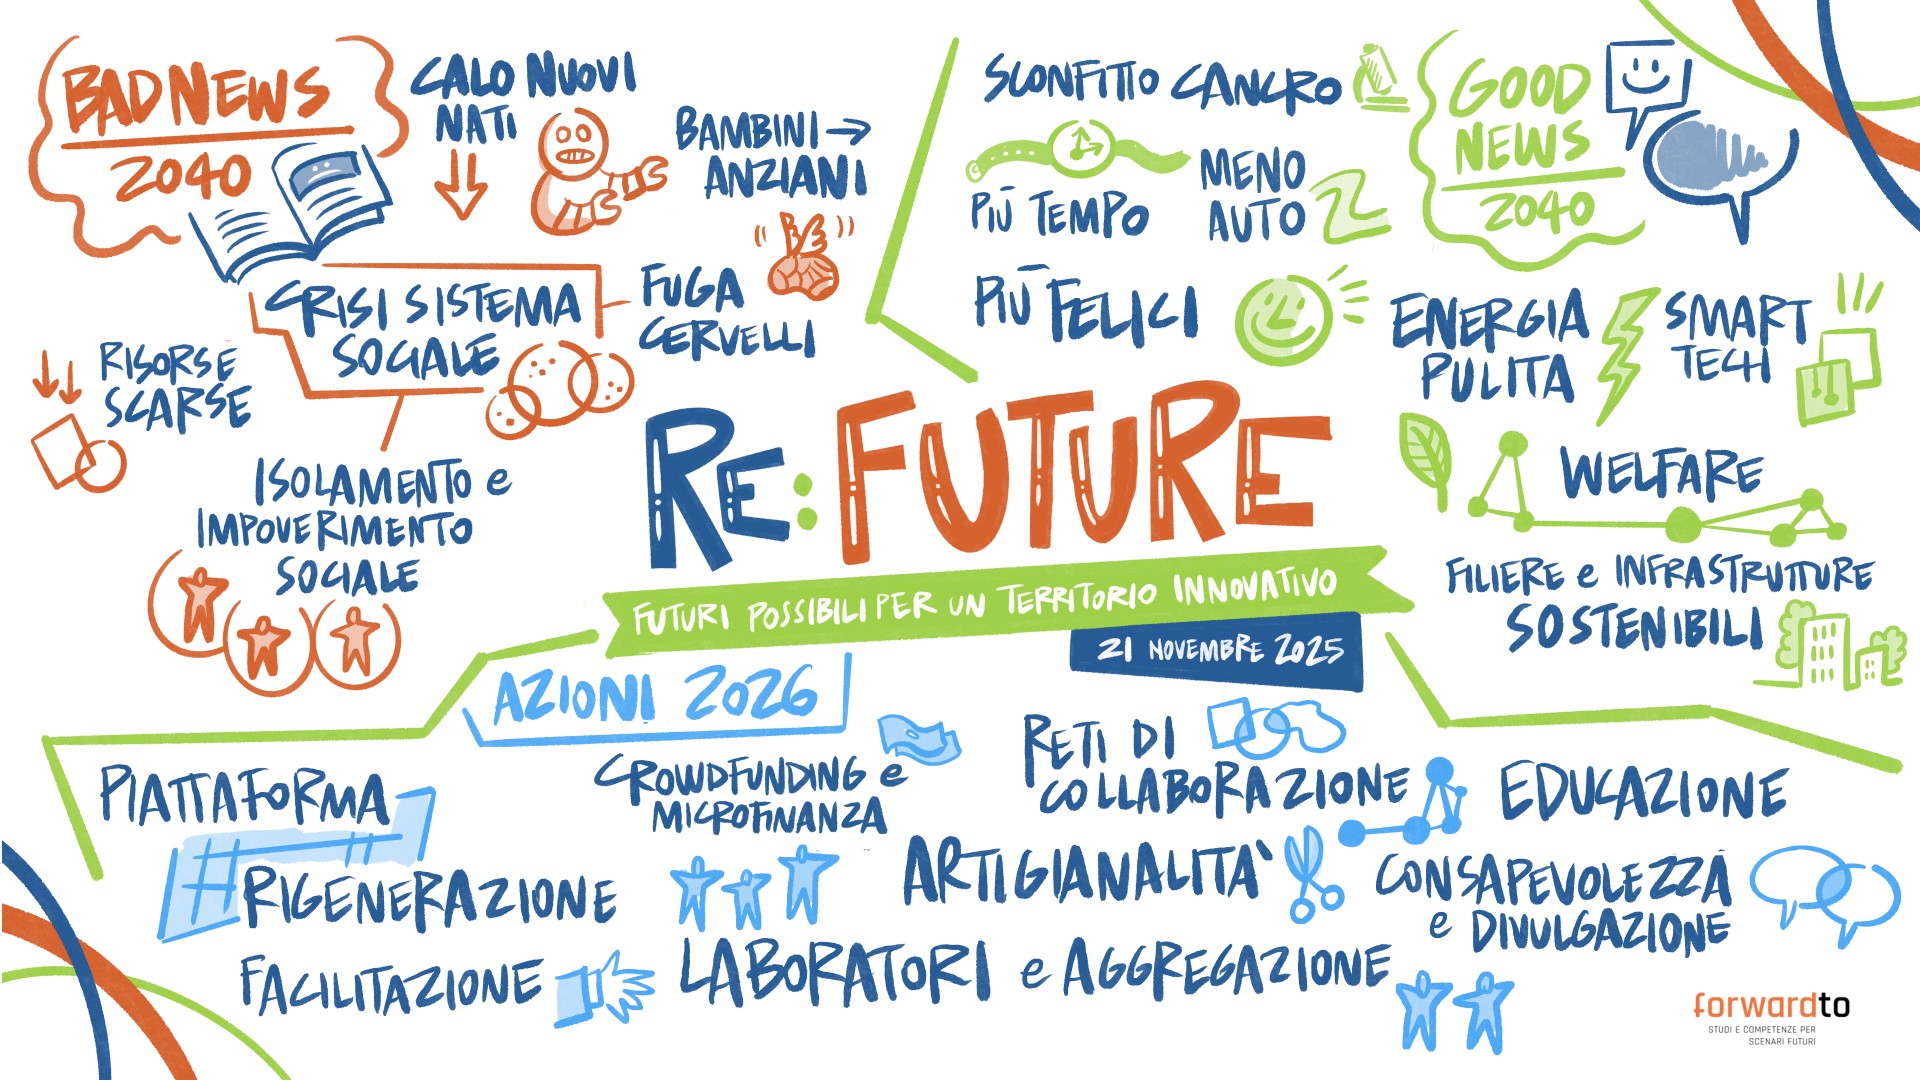 BAD NEWS
2040
CALO NUOVI
NATI
BAMBINI →
ANZIANI
CRISI SISTEMA
SOCIALE
FUGA
CERVELLI
RISORSE
SCARSE
ISOLAMENTO e
IMPOVERIMENTO
SOCIALE
SCONFITTO CANCRO
PIÙ TEMPO
MENO
AUTO
PIÙ FELICI
GOOD
NEWS
2040
ENERGIA
PULITA
SMART
TECH
WELFARE
FILIERE e INFRASTRUTTURE
SOSTENIBILI
RE:FUTURE
FUTURI POSSIBILI PER UN TERRITORIO INNOVATIVO
21 NOVEMBRE 2025
AZIONI 2026
PIATTAFORMA
RIGENERAZIONE
FACILITAZIONE
CROWDFUNDING e
MICROFINANZA
RETI DI
COLLABORAZIONE
EDUCAZIONE
ARTIGIANALITA'
CONSAPEVOLEZZA
e DIVULGAZIONE
LABORATORI e AGGREGAZIONE
forwardto
STUDI E COMPETENZE PER
SCENARI FUTURI